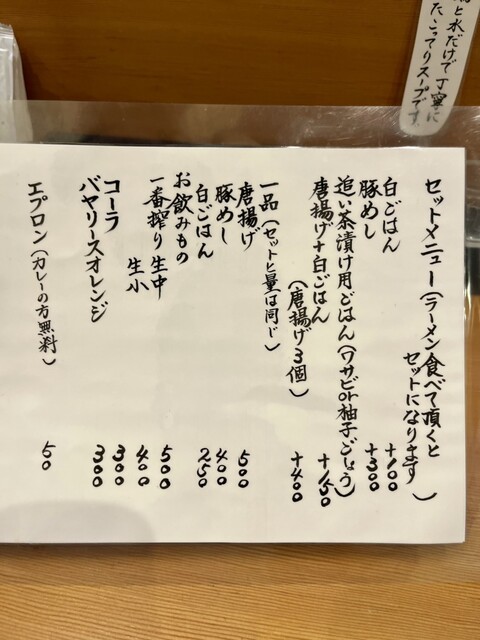 鶏と水だけで丁寧に
たこってりスープです。
セットメニュー(ラーメン食べて頂くと
セットになります)
白ごはん +100
豚めし +300
追い茶漬け用ごはん(ワサビor柚子ごしょう) +150
唐揚げ+白ごはん +400
(唐揚げ3個)
一品(セットと量は同じ)
唐揚げ 500
豚めし 400
白ごはん 250
お飲みもの
一番搾り 生中 500
生小 400
コーラ 300
バヤリースオレンジ 300
エプロン(カレーの方無料) 50